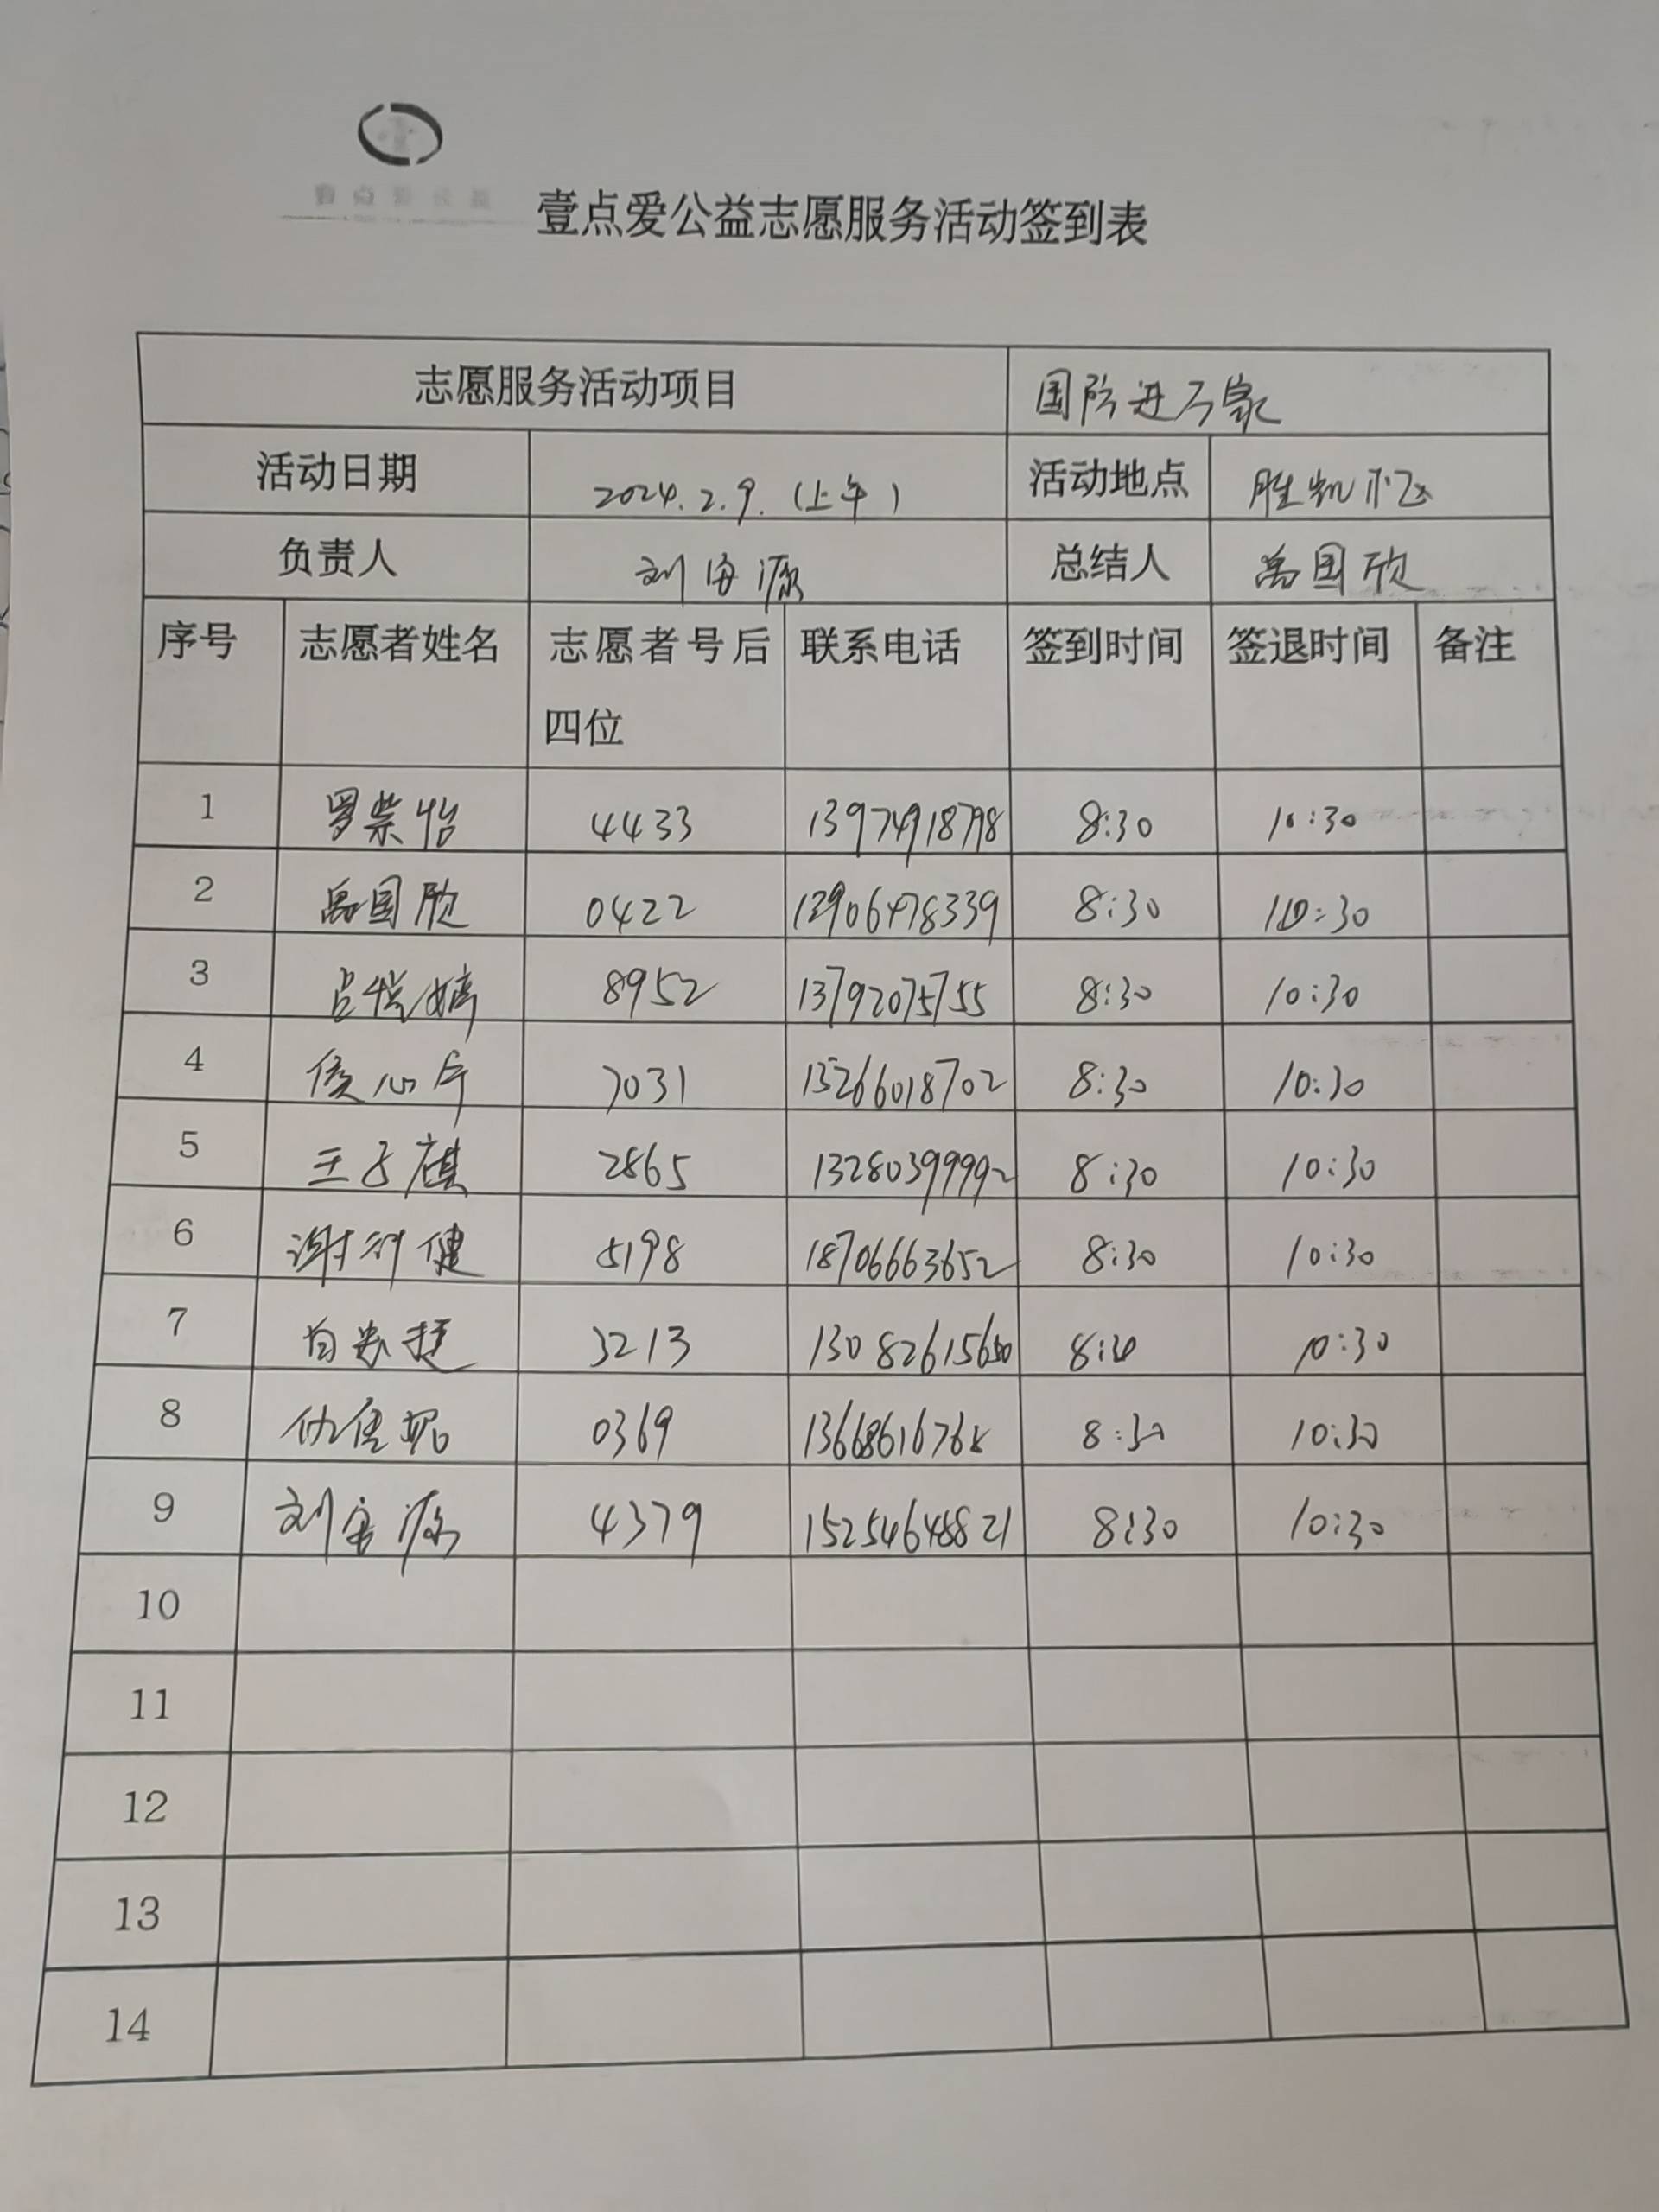 壹点爱公益志愿服务活动签到表
志愿服务活动项目 国防进万家
活动日期 2024.2.9.(上午) 活动地点 胜凯
负责人 刘 源 总结人 禹国欣
序号 志愿者姓名 志愿者号后四位 联系电话 签到时间 签退时间 备注
1 罗紫怡 4433 13974918798 8:30 10:30
2 禹国欣 0422 13906478339 8:30 10:30
3 吕 婧 8952 13792075755 8:30 10:30
4 侯心 7031 15266018702 8:30 10:30
5 王子麒 2865 13280399992 8:30 10:30
6 谢 健 5198 18706663652 8:30 10:30
7 捷 3213 8:30 10:30
8 0369 8:30 10:30
9 刘 源 4379 15254648821 8:30 10:30
10
11
12
13
14